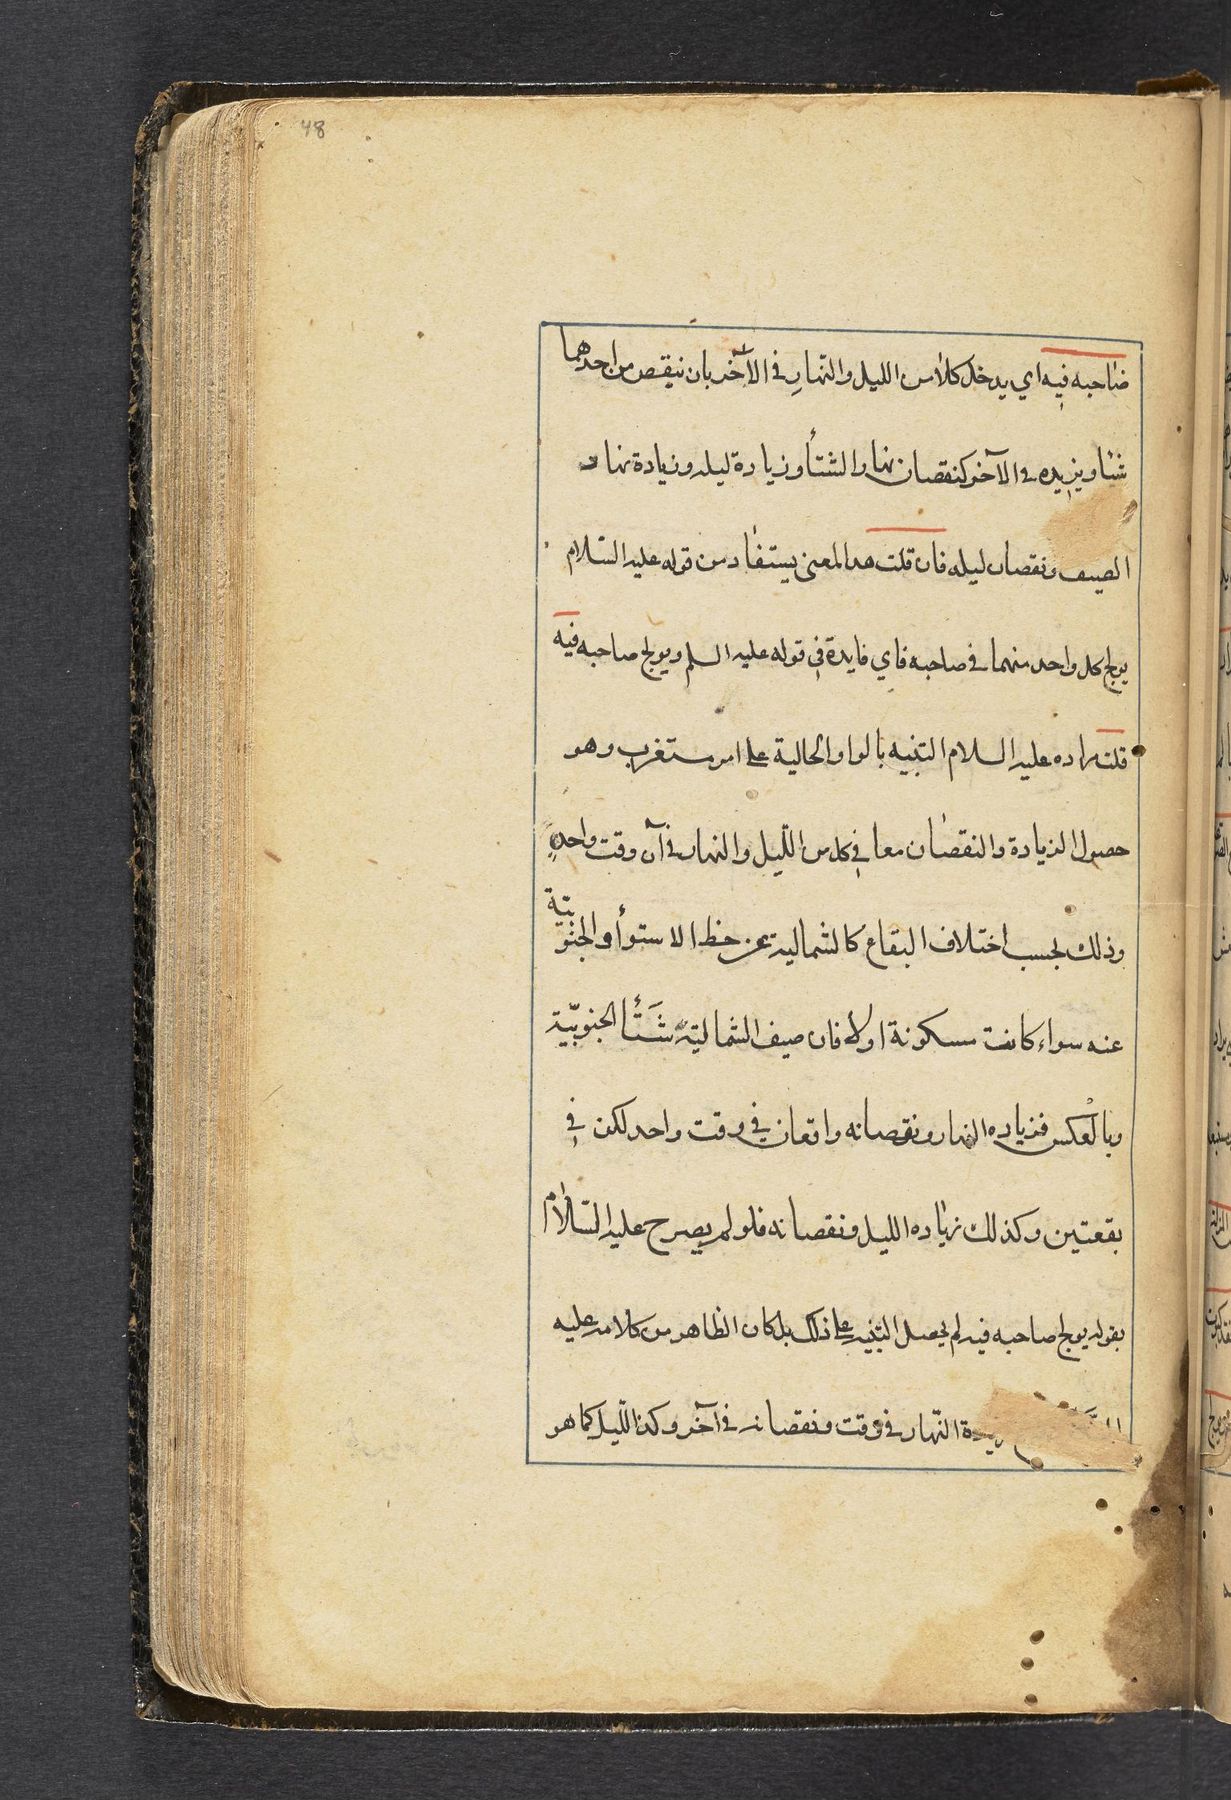 48
صاحبه فيه اي يدخل كلا من الليل والنهار في الآخر بان ينقص من احدهما
شئا ويزيده في الآخر كنقصان نهار الشتأ وزيادة ليله وزيادة نهار
الصيف ونقصان ليله فان قلت هذا المعنى يستفاد من قوله عليه السّلام
يولج كل واحد منهما في صاحبه فاي فايدة في قوله عليه السلم ويولج صاحبه فيه
قلت مراده عليه السلام التنبيه بالواو الحالية على امر مستغرب وهو
حصول الزيادة والنقصان معا في كل من اللّيل والنهار في آن وقت واحد
وذلك بحسب اختلاف البقاع كالشمالية عن خط الاستوأ والجنوبيّة
عنه سواء كانت مسكونة اولا فان صيف الشماليّة شتأ الجنوبيّة
وبالعكس فزياده النهار ونقصانه واقعان في وقت واحد لكن في
بقعتين وكذلك زياده الليل ونقصانه فلو لم يصرح عليه السّلام
بقوله يولج صاحبه فيه لم يحصل التنبيه على ذلك بل كان الظاهر من كلامه عليه
النّهار في وقت ونقصانه في آخر وكذا اللّيل كما هو